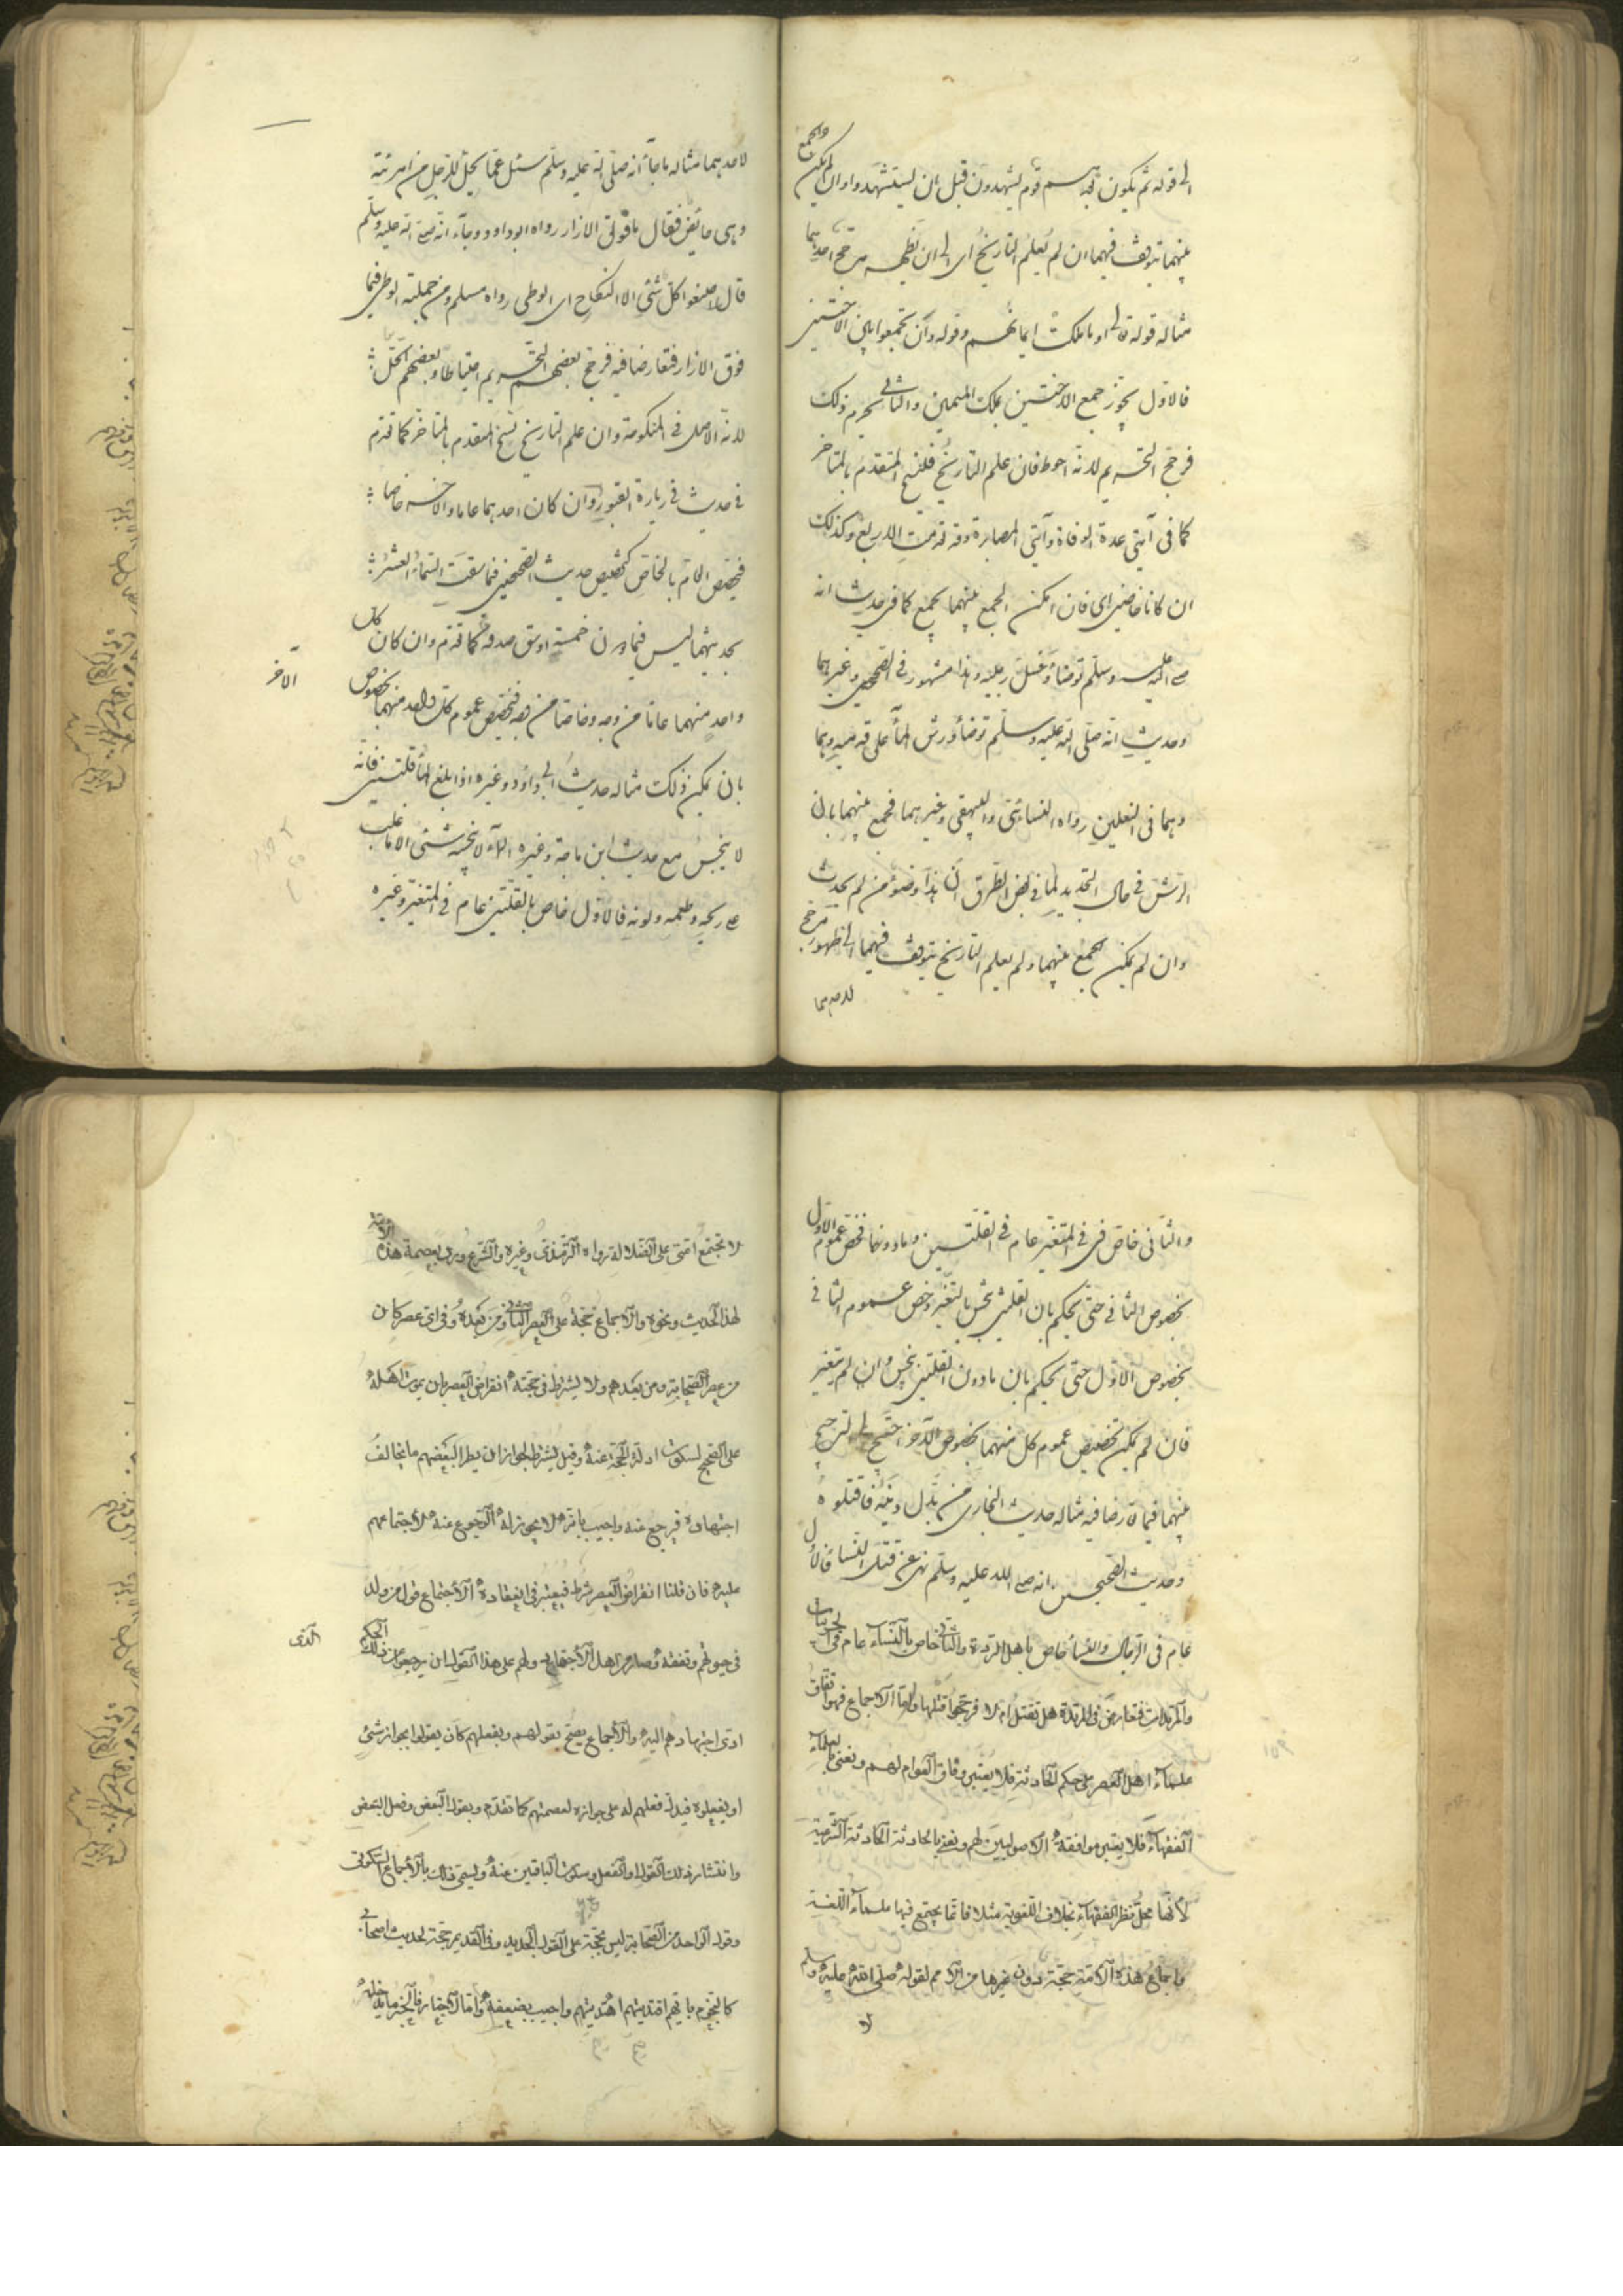 الى قوله ثم يكون بعدهم قوم يشهدون قبل ان يستشهدوا وان لم يمكن الجمع
بينهما يتوقف فيهما ان لم يعلم التاريخ اى الى ان يظهر مرجح احدهما
مثاله قوله تعالى او ما ملكت ايمانهم وقوله وان تجمعوا بين الاختين
فالاول يجوز جمع الاختين بملك اليمين والثانى يحرم ذلك
فرجح التحريم لانه احوط فان علم التاريخ فلينسخ المتقدم بالمتاخر
كما فى آيتى عدة الوفاة وآيتى المصابرة وقد تقدمت الاربع وكذلك
ان كانا خاصين اى فان امكن الجمع بينهما يجمع كما فى حديث انه
صلى الله عليه وسلم توضأ وغسل رجليه وهذا مشهور فى الصحيحين وغيرهما
وحديث انه صلى الله عليه وسلم توضأ ورش الماء على قدميه وهما
وهما فى النعلين رواه النسائى والبيهقى وغيرهما فجمع بينهما بان
الرش فى حال التجديد لما فى بعض الطرق ان هذا وضوء من لم يحدث
وان لم يمكن الجمع بينهما ولم يعلم التاريخ يتوقف فيهما الى ظهور مرجح
لاحدهما
لاحدهما مثاله ما جاء انه صلى الله عليه وسلم سئل عما يحل للرجل من امرئته
وهى حائض فقال ما فوق الازار رواه ابو داود وجاء انه صلى الله عليه وسلم
قال اصنعوا كل شئ الا النكاح اى الوطى رواه مسلم ومن جملته الوطى فيما
فوق الازار فتعارضا فيه فرجح بعضهم التحريم احتياطا وبعضهم الحل
لانه الاصل فى المنكوحة وان علم التاريخ نسخ المتقدم بالمتاخر كما تقدم
فى حديث فى زيارة القبور وان كان احدهما عاما والآخر خاصا
فيخصص العام بالخاص كتخصيص حديث الصحيحين فيما سقت السماء العشر
بحديثهما ليس فيما دون خمسة اوسق صدقة كما تقدم وان كان كل
واحد منهما عاما من وجه وخاصا من وجه فيخصص عموم كل واحد منهما بخصوص
الآخر
بان يمكن ذلك مثاله حديث ابى داؤد وغيره اذا بلغ الماء قلتين فانه
لا ينجس مع حديث ابن ماجة وغيره الماء لا ينجسه شئ الا ما غلب
على ريحه وطعمه ولونه فالاول خاص بالقلتين عام فى المتغير وغيره
والثانى خاص فى المتغير عام فى القلتين وما دونهما فخص عموم الاول
بخصوص الثانى حتى يحكم بان القلتين ينجس بالتغير وخص عموم الثانى
بخصوص الاول حتى يحكم بان ما دون القلتين ينجس وان لم يتغير
فان لم يمكن تخصيص عموم كل منهما بخصوص الآخر احتيج الى الترجيح
بينهما فيما تعارضا فيه مثاله حديث البخارى من بدل دينه فاقتلوه
وحديث الصحيحين انه صلى الله عليه وسلم نهى عن قتل النساء فالاول
عام فى الرجال والنساء خاص باهل الردة والثانى خاص بالنساء عام فى الحربيات
والمرتدات فتعارض فى المرتدة هل تقتل ام لا فرجحوا قتلها واما الاجماع فهو اتفاق
علماء اهل العصر على حكم الحادثة فلا يعتبر وفاق العوام لهم ونعنى بالعلماء
الفقهاء فلا يعتبر موافقة الاصوليين لهم ونعنى بالحادثة الحادثة الشرعية
لانها محل نظر الفقهاء بخلاف اللغوية مثلا فانما يجتمع فيها علماء اللغة
واجماع هذه الامة حجة دون غيرها من الامم لقوله صلى الله عليه وسلم
لا
لا تجتمع امتى على الضلالة رواه الترمذى وغيره والشرع ورد بعصمة هذه الامة
لهذا الحديث ونحوه والاجماع حجة على العصر الثانى ومن بعده وفى اى عصر كان
من عصر الصحابة ومن بعدهم ولا يشترط فى حجته انقراض العصر بان يموت اهله
على الصحيح لسكوت ادلة الحجة عنه وقيل يشترط لجواز ان يطرا لبعضهم ما يخالف
اجتهاده فيرجع عنه واجيب بانه لا يجوز له الرجوع عنه لاجتماعهم
عليه فان قلنا انقراض العصر شرط فيعتبر فى انعقاده الاجتماع قول من ولد
فى حيوتهم وتفقه وصار من اهل الاجتهاد ولهم على هذا القول ان يرجعوا عن ذلك الحكم
الذى
ادى اجتهادهم اليه والاجماع يصح بقولهم وبفعلهم كان يقولوا بجواز شئ
او يفعلوه فيدل فعلهم له على جوازه لعصمتهم كما تقدم وبقول البعض وفعل البعض
وانتشار ذلك القول او الفعل وسكوت الباقين عنه ويسمى ذلك بالاجماع السكوتى
وقول الواحد من الصحابة ليس بحجة على القول الجديد وفى القديم حجة لحديث اصحابى
كالنجوم بايهم اقتديتم اهتديتم واجيب بضعفه واما الاخبار فالخبر ما يدخله